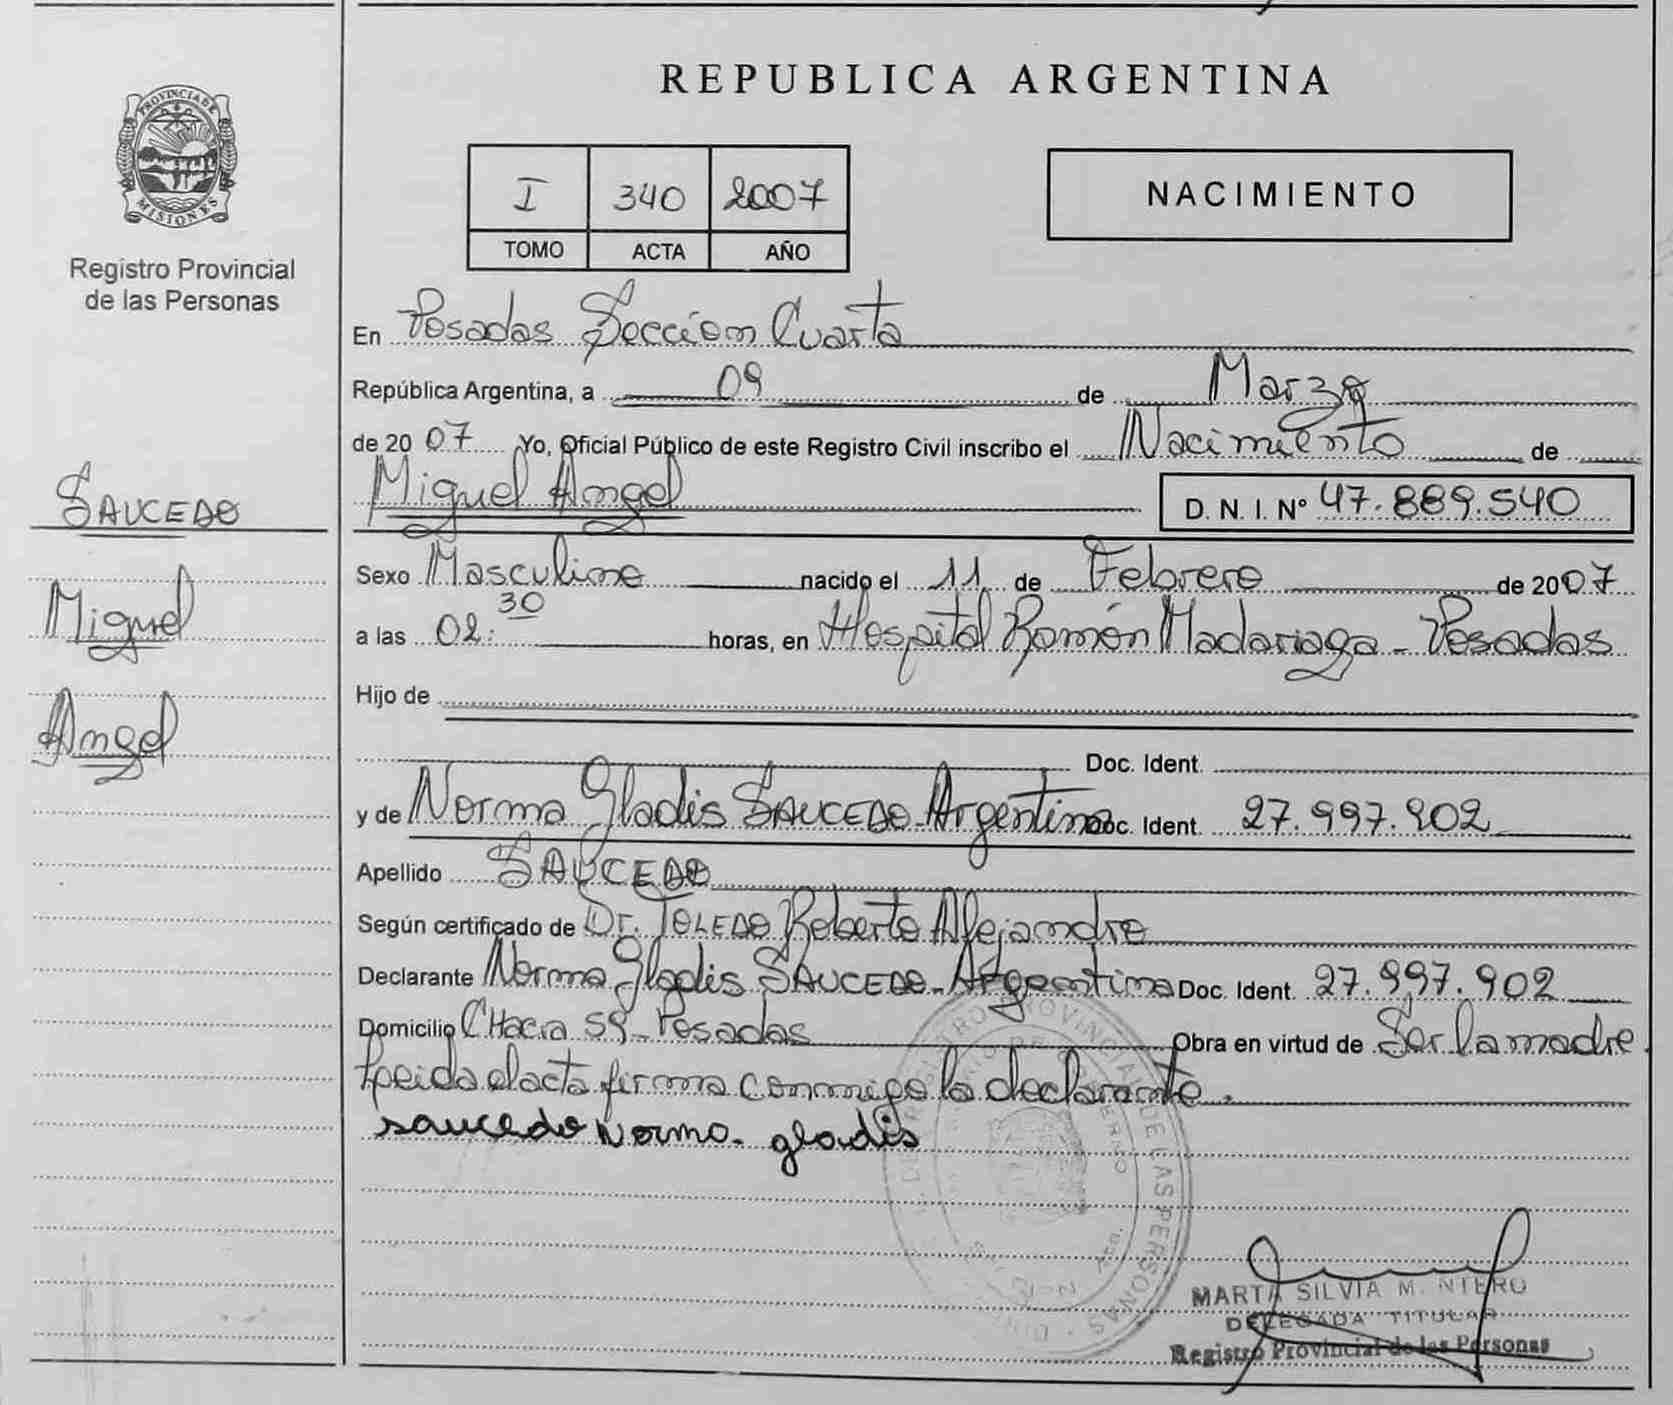 REPUBLICA ARGENTINA
PROVINCIA DE
MISIONES
Registro Provincial
de las Personas
I 340 2007
TOMO ACTA AÑO
NACIMIENTO
En Posadas Sección Cuarta
República Argentina, a 09 de Marzo
de 2007 Yo, Oficial Público de este Registro Civil inscribo el Nacimiento de
Miguel Angel D. N. I. Nº 47.889.540
SAUCEDO
Miguel
Angel
Sexo Masculino nacido el 11 de Febrero de 2007
a las 02:30 horas, en Hospital Ramón Madariaga - Posadas
Hijo de
Doc. Ident.
y de Norma Gladis SAUCEDO - Argentina Doc. Ident. 27.997.902
Apellido SAUCEDO
Según certificado de Dr. TOLEDO Roberto Alejandro
Declarante Norma Gladis SAUCEDO - Argentina Doc. Ident. 27.997.902
Domicilio CHacra 59 - Posadas Obra en virtud de Ser la madre.
Leida el acta firma conmigo la declarante.
saucedo Norma gladis
MARTA SILVIA M
DELEGADA TITULAR
Registro Provincial de las Personas